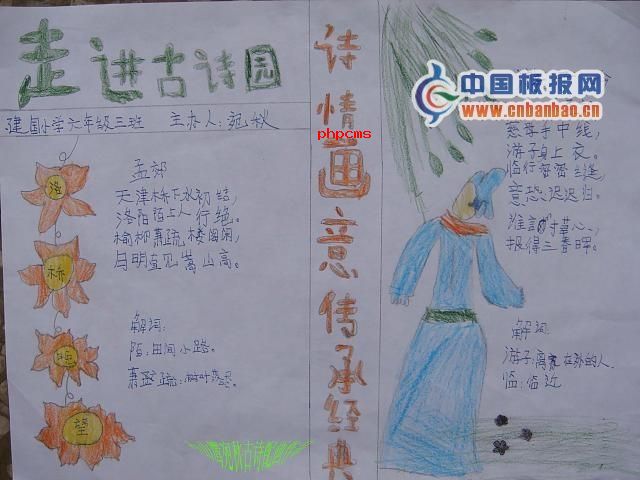 走进古诗园
建国小学六年级三班 主办人:宛秋
洛
桥
晚
望
孟郊
天津桥下冰初结,
洛阳陌上人行绝。
榆柳萧疏楼阁闲,
月明直见嵩山高。
解词:
陌:田间小路。
萧疏:树叶
诗情画意传承经典
phpcms
中国板报网
www.cnbanbao.cn
慈母手中线,
游子身上衣。
临行密密缝,
意恐迟迟归。
谁言寸草心,
报得三春晖。
解词:
游子:离家在外的人.
临:临近